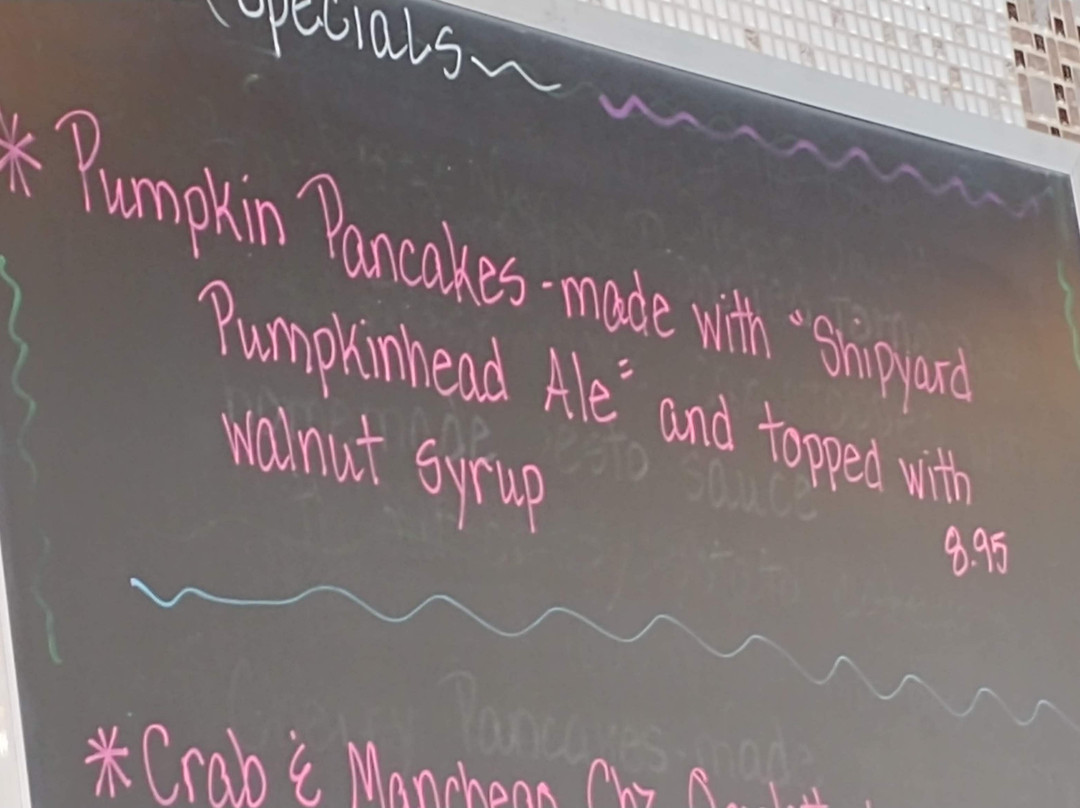 Specials
* Pumpkin Pancakes - made with "Shipyard
Pumpkinhead Ale" and topped with
walnut syrup
8.95
* Crab & Manchego Chz Omelette